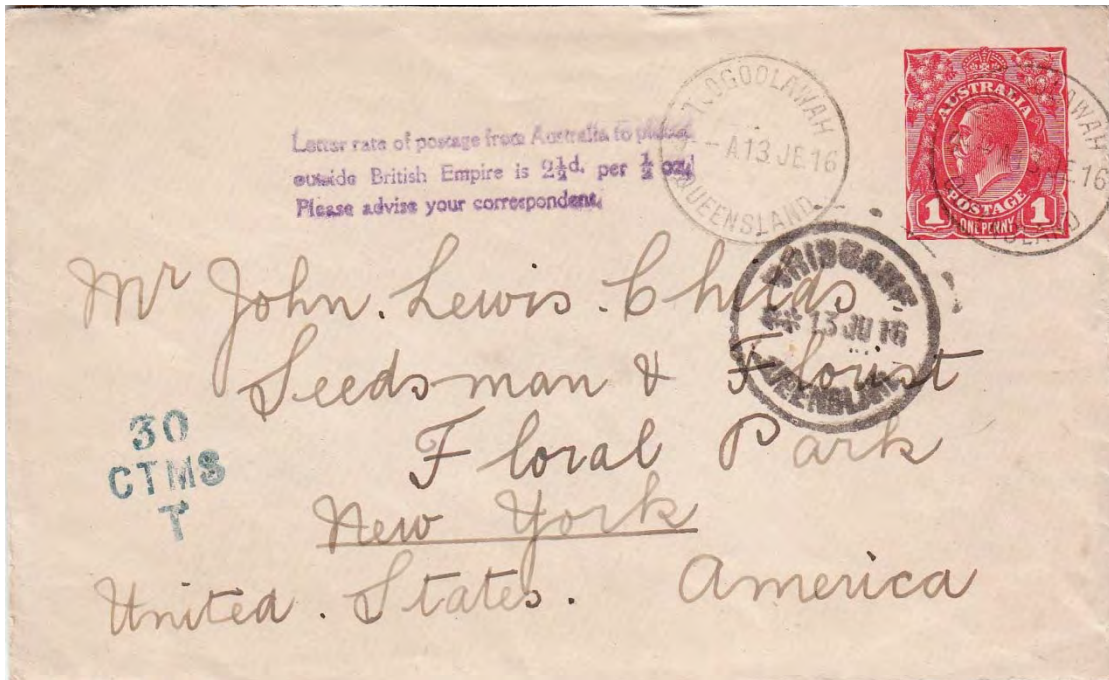 Letter rate of postage from Australia to places
outside British Empire is 2½d. per ½ oz.
Please advise your correspondent.
TOOGOOLAWAH
-A13 JE16
QUEENSLAND
AUSTRALIA
POSTAGE
1 ONE PENNY 1
BRISBANE
** 13 JU 16
QUEENSLAND
Mr John. Lewis. Childs
Seedsman & Florist
Floral Park
New York
United. States. America
30
CTMS
T